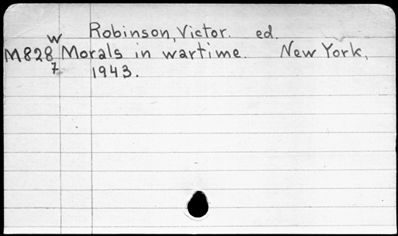 w Robinson, Victor. ed.
M828 Morals in wartime. New York,
7 1943.